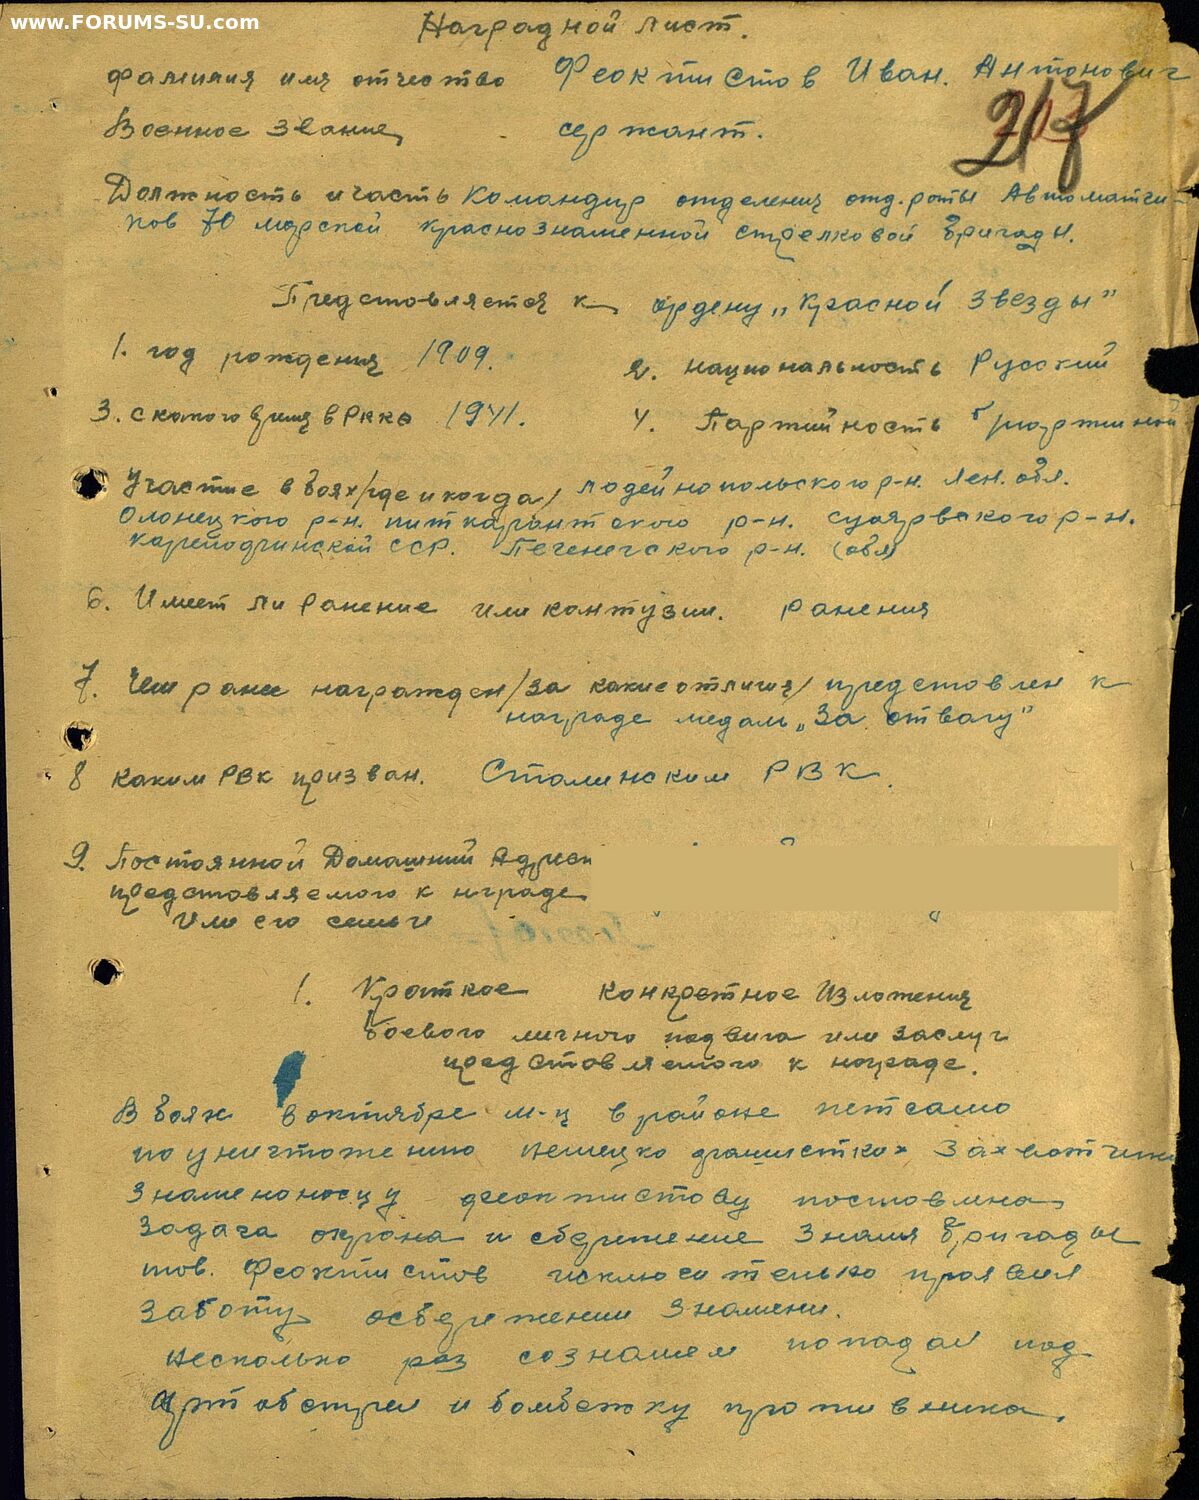 www.FORUMS-SU.com
Наградной лист.
фамилия имя отчество Феоктистов Иван. Антонович
217
Военное звание, сержант.
Должность и часть Командир отделения отд. роты Автоматчи-
ков 70 морской краснознаменной стрелковой бригады.
Представляется к ордену „Красной Звезды"
1. год рождения 1909. 2. национальность Русский
3. с какого время в РККА 1941. 4. Партийность б/партийной
Участие в боях /где и когда/ Лодейнопольского р-н. Лен. обл.
Олонецкого р-н. питкарантского р-н. суоярвского р-н.
карелофинской ССР. Печенегского р-н. (обл)
6. Имеет ли Ранение или контузии. ранения
7. Чем ранее награжден /за какие отличия/ представлен к
награде медаль „За отвагу"
8 каким РВК призван. Сталинским РВК.
9. Постоянной Домашний Адрес
представляемого к нграде
или его семьи
1. Краткое конкретное Изложения
боевого личного подвига или заслуг
представляемого к награде.
В боях в октябре м-ц в районе петсамо
по уничтожению немецко фашистких
знаменоносцу феоктистову поставлена
задача охрана и сбережение Знамя бригады
тов. Феоктистов исключительно проявил
заботу осбережении знамени.
несколько раз сознамем попадал под
артобстрел и бомбежку противника.